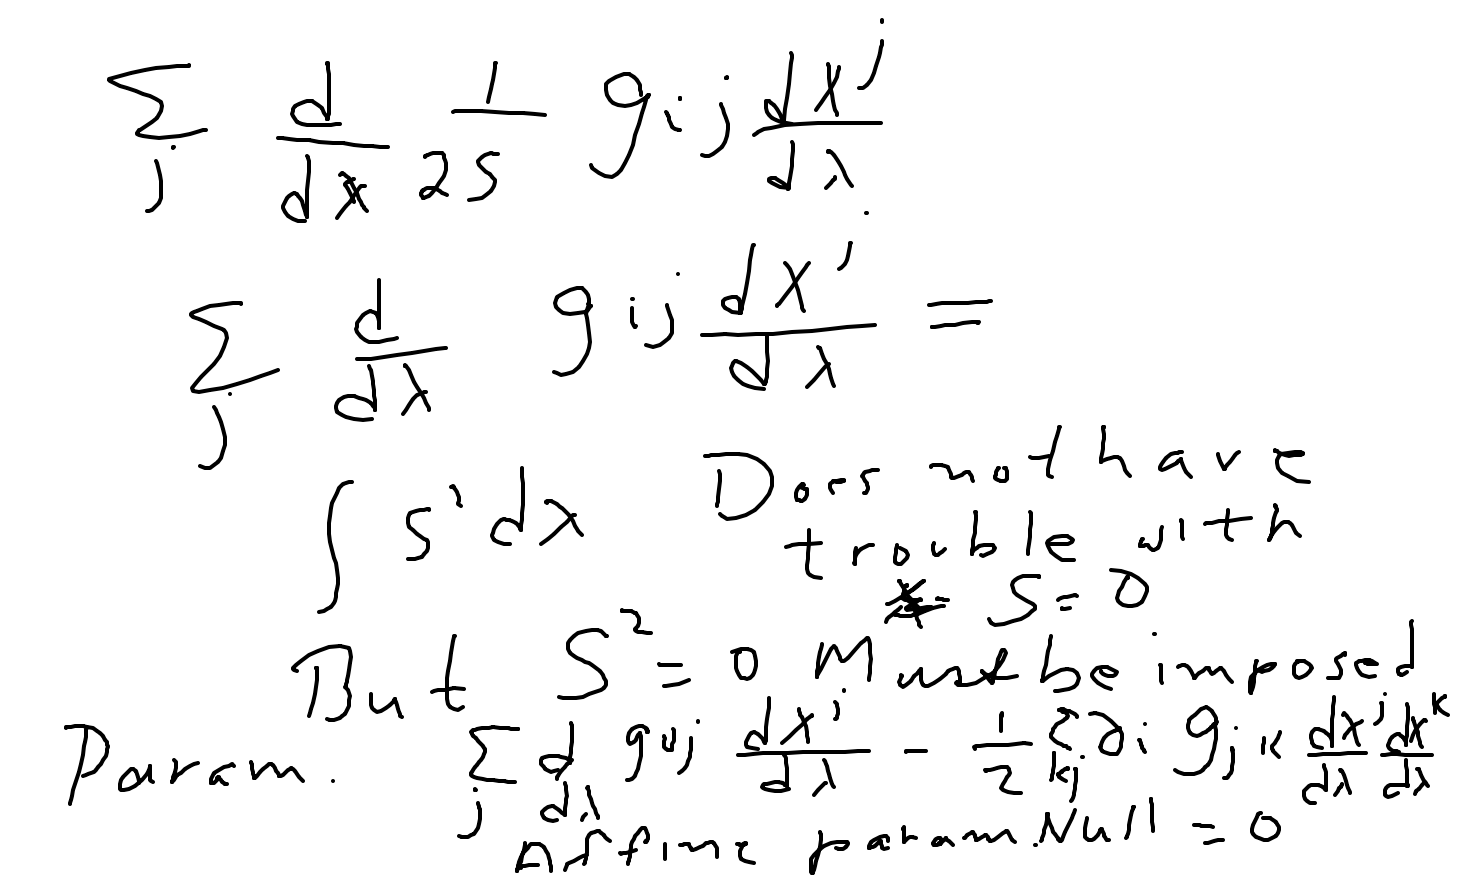 ∑_j d/dλ 1/2S g_ij dx^j/dλ
∑_j d/dλ g_ij dx^j/dλ =
∫ S² dλ Does not have
trouble with
S=0
But S²=0 Must be imposed
Param. ∑_j d/dλ g_ij dx^j/dλ - 1/2 ∑_kj ∂_i g_jk dx^j/dλ dx^k/dλ
Affine param. Null = 0